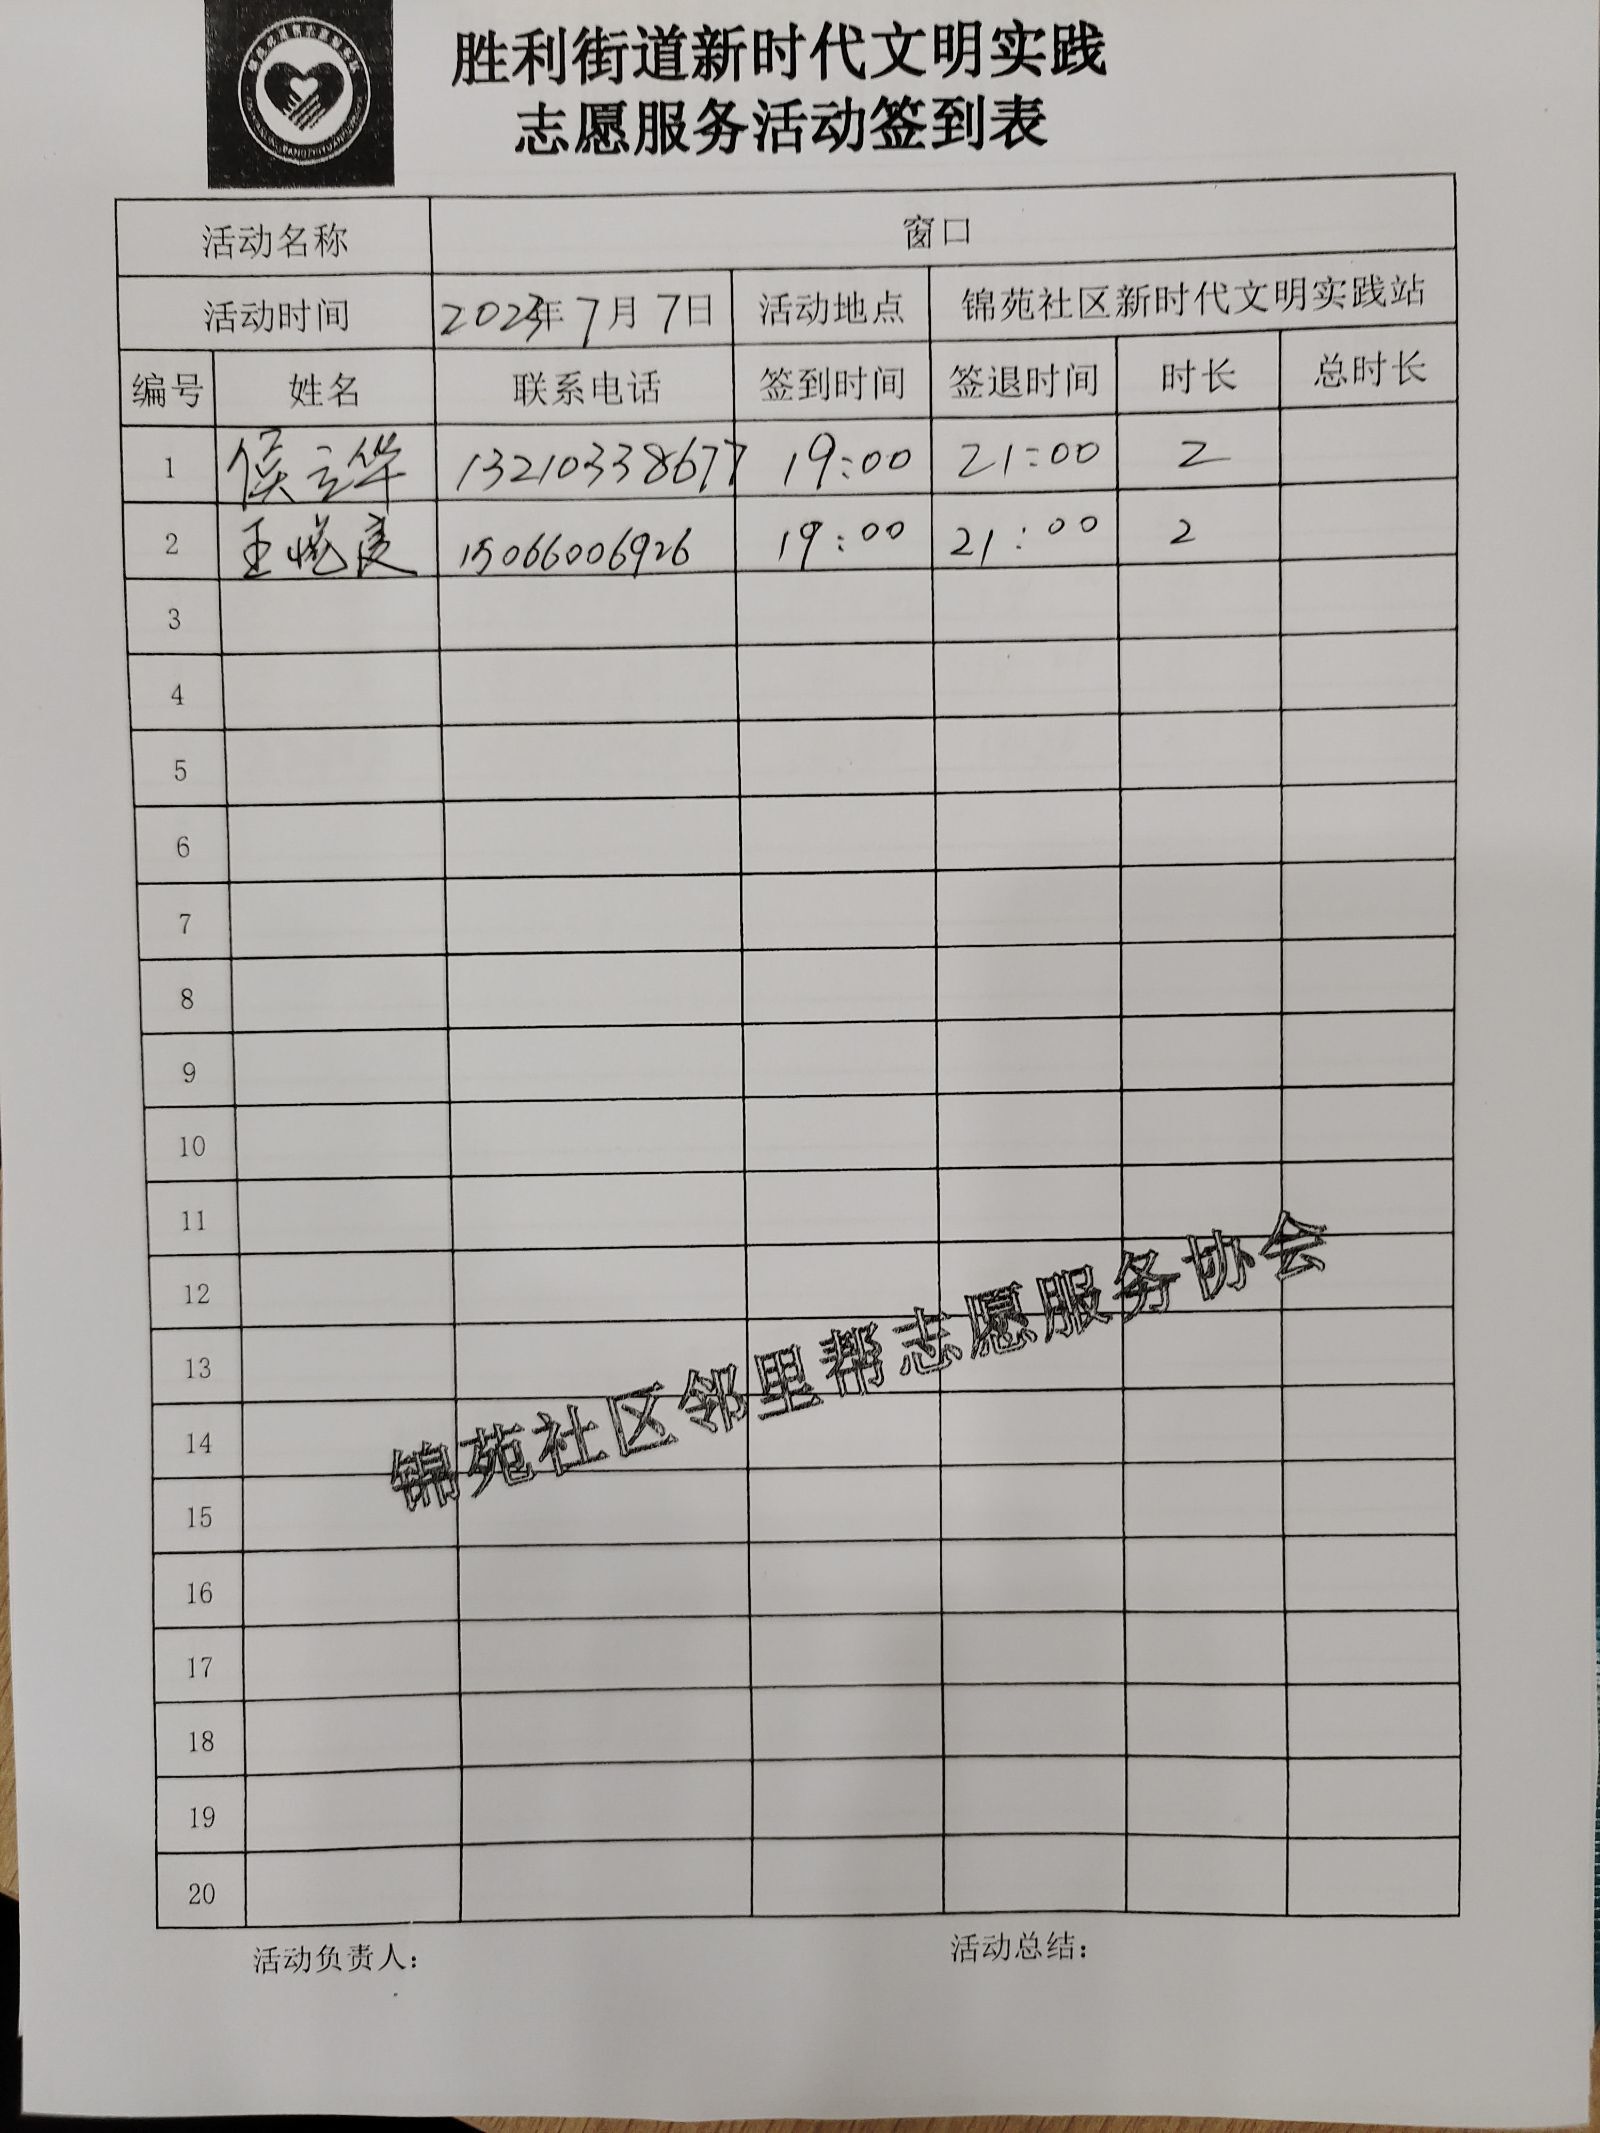 胜利街道新时代文明实践
志愿服务活动签到表
活动名称 窗口
活动时间 2023年7月7日 活动地点 锦苑社区新时代文明实践站
编号 姓名 联系电话 签到时间 签退时间 时长 总时长
1 侯立华 13210338677 19:00 21:00 2
2 王 15066006926 19:00 21:00 2
3
4
5
6
7
8
9
10
11
12
13
14
15
16
17
18
19
20
锦苑社区邻里帮志愿服务协会
活动负责人： 活动总结：